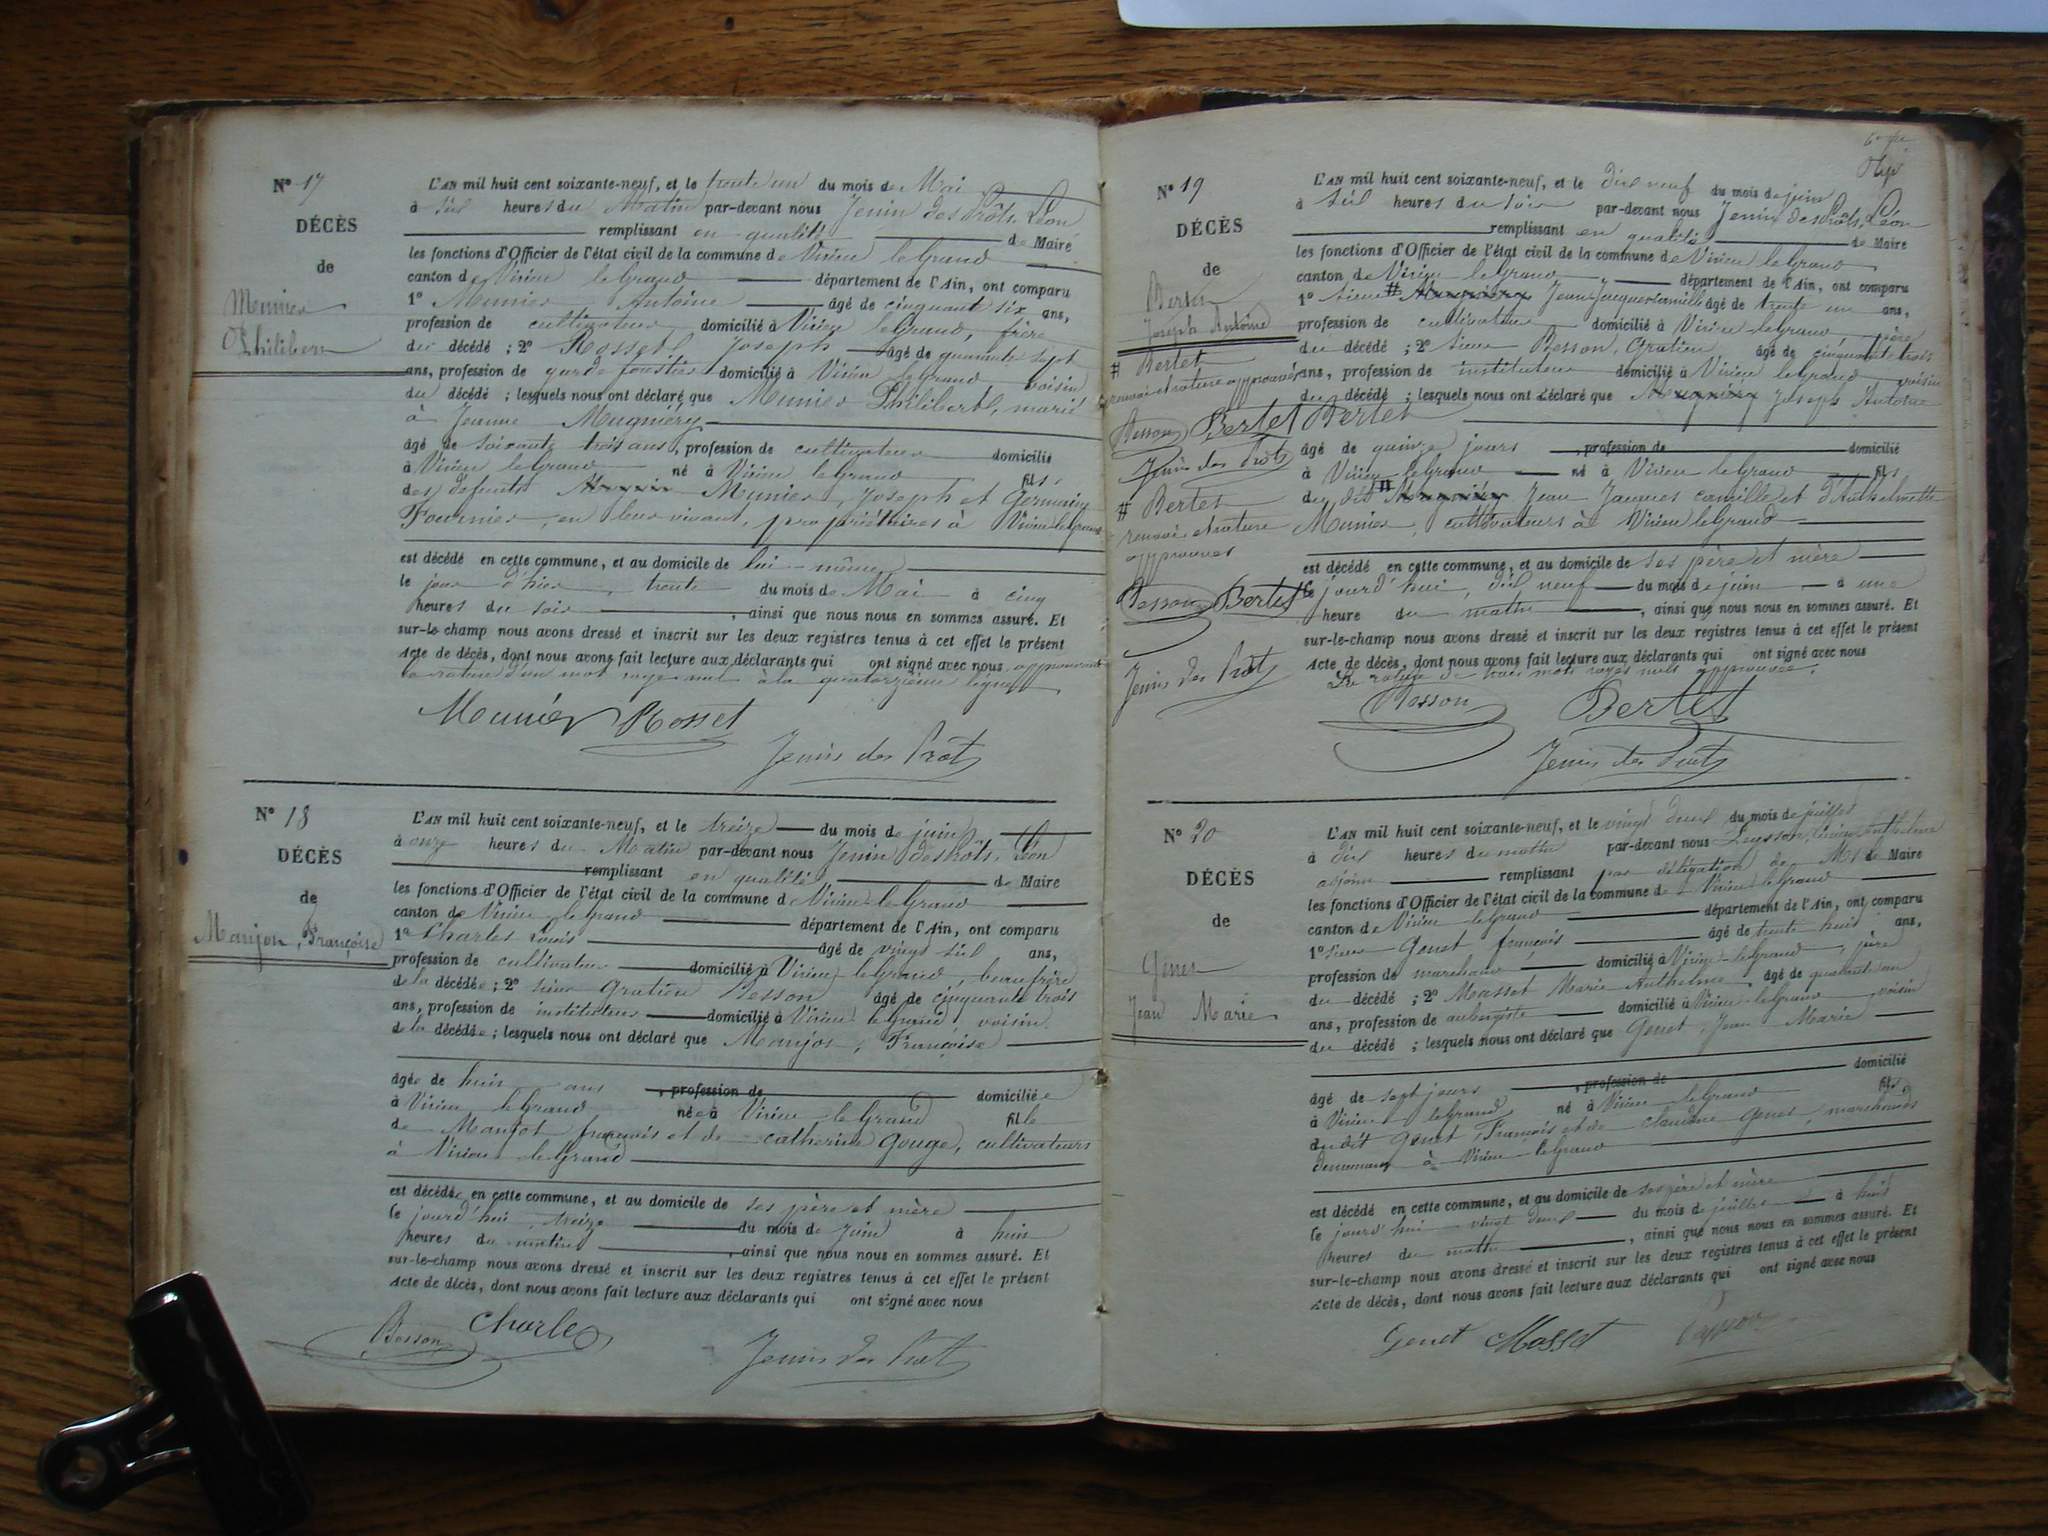 N° 17
DÉCÈS
de
Munier
Philibert
L'AN mil huit cent soixante-neuf, et le trente un du mois de Mai
à six heures du Matin par-devant nous Jenin des Prôts, Léon
remplissant en qualité de Maire
les fonctions d'Officier de l'état civil de la commune de Virieu le Grand
canton de Virieu le Grand département de l'Ain, ont comparu
1° Munier Antoine âgé de cinquant six ans,
profession de cultivateur domicilié à Virieu le Grand, frère
du décédé ; 2° Rosset Joseph âgé de quarante sept
ans, profession de garde forestier domicilié à Virieu le Grand voisin
du décédé ; lesquels nous ont déclaré que Munier Philibert, marié
à Jeanne Mugniéry
âgé de soixante trois ans, profession de cultivateur domicilié
à Virieu le Grand né à Virieu le Grand fils
des défunts Munier, Joseph et Germaine
Fournier, en leur vivant, propriétaires à Virieu le Grand
est décédé en cette commune, et au domicile de lui-même
le jour d'hier, trente du mois de Mai à cinq
heures du soir, ainsi que nous nous en sommes assuré. Et
sur-le-champ nous avons dressé et inscrit sur les deux registres tenus à cet effet le présent
Acte de décès, dont nous avons fait lecture aux déclarants qui ont signé avec nous, approuvant
la rature d'un mot rayé nul à la quatorzième ligne
Munier Rosset
Jenin des Prôts
N° 18
DÉCÈS
de
Manjon, Françoise
L'AN mil huit cent soixante-neuf, et le treize du mois de juin
à onze heures du Matin par-devant nous Jenin des Prôts, Léon
remplissant en qualité de Maire
les fonctions d'Officier de l'état civil de la commune de Virieu le Grand
canton de Virieu le Grand département de l'Ain, ont comparu
1° Charles Louis âgé de vingt six ans,
profession de cultivateur domicilié à Virieu le Grand, beau frère
de la décédée ; 2° sieur Gratien Besson âgé de cinquante trois
ans, profession de instituteur domicilié à Virieu le Grand, voisin
de la décédée ; lesquels nous ont déclaré que Manjot, Françoise
âgée de huit ans, profession de domiciliée
à Virieu le Grand née à Virieu le Grand fille
de Manjot françois et de catherine Gouge, cultivateurs
à Virieu le Grand
est décédée en cette commune, et au domicile de ses père et mère
le jourd'hui treize du mois de juin à huit
heures du matin, ainsi que nous nous en sommes assuré. Et
sur-le-champ nous avons dressé et inscrit sur les deux registres tenus à cet effet le présent
Acte de décès, dont nous avons fait lecture aux déclarants qui ont signé avec nous
Besson Charles
Jenin des Prôts
N° 19
DÉCÈS
de
Bertet
Joseph Antoine
# Bertet
renvoi et rature approuvés
Besson Bertet Bertet
Jenin des Prôts
# Bertet
renvoi et rature
approuvés
Besson Bertet
Jenin des Prôts
L'AN mil huit cent soixante-neuf, et le dix neuf du mois de juin
à six heures du soir par-devant nous Jenin des Prôts, Léon
remplissant en qualité de Maire
les fonctions d'Officier de l'état civil de la commune de Virieu le Grand
canton de Virieu le Grand département de l'Ain, ont comparu
1° sieur # Mugniéry Jean Jacques Camille âgé de trente un ans,
profession de cultivateur domicilié à Virieu le Grand père
du décédé ; 2° sieur Besson, Gratien âgé de cinquante trois
ans, profession de instituteur domicilié à Virieu le Grand voisin
du décédé ; lesquels nous ont déclaré que Mugniéry Joseph Antoine
âgé de quinze jours, profession de domicilié
à Virieu le Grand né à Virieu le Grand fils
du dit # Mugniéry Jean Jacques Camille et d'Anthelmette
Munier, cultivateurs à Virieu le Grand
est décédé en cette commune, et au domicile de ses père et mère
le jourd'hui, dix neuf du mois de juin à une
heure du matin, ainsi que nous nous en sommes assuré. Et
sur-le-champ nous avons dressé et inscrit sur les deux registres tenus à cet effet le présent
Acte de décès, dont nous avons fait lecture aux déclarants qui ont signé avec nous
La rature de trois mots rayés nuls approuvée.
Besson Bertet
Jenin des Prôts
N° 20
DÉCÈS
de
Genet
Jean Marie
L'AN mil huit cent soixante-neuf, et le vingt deux du mois de juillet
à dix heures du matin par-devant nous Anthelme
adjoint remplissant par délégation de Mr le Maire
les fonctions d'Officier de l'état civil de la commune de Virieu le Grand
canton de Virieu le Grand département de l'Ain, ont comparu
1° sieur Genet françois âgé de trente huit ans,
profession de marchand domicilié à Virieu le Grand, père
du décédé ; 2° Masset Marie Anthelme, âgé de quarante un
ans, profession de aubergiste domicilié à Virieu le Grand voisin
du décédé ; lesquels nous ont déclaré que Genet, Jean Marie
âgé de sept jours, profession de domicilié
à Virieu le Grand né à Virieu le Grand fils
du dit Genet, François et de claudine Genet, marchands
demeurant à Virieu le Grand
est décédé en cette commune, et au domicile de ses père et mère
le jourd'hui vingt deux du mois de juillet à huit
heures du matin, ainsi que nous nous en sommes assuré. Et
sur-le-champ nous avons dressé et inscrit sur les deux registres tenus à cet effet le présent
Acte de décès, dont nous avons fait lecture aux déclarants qui ont signé avec nous
Genet Masset